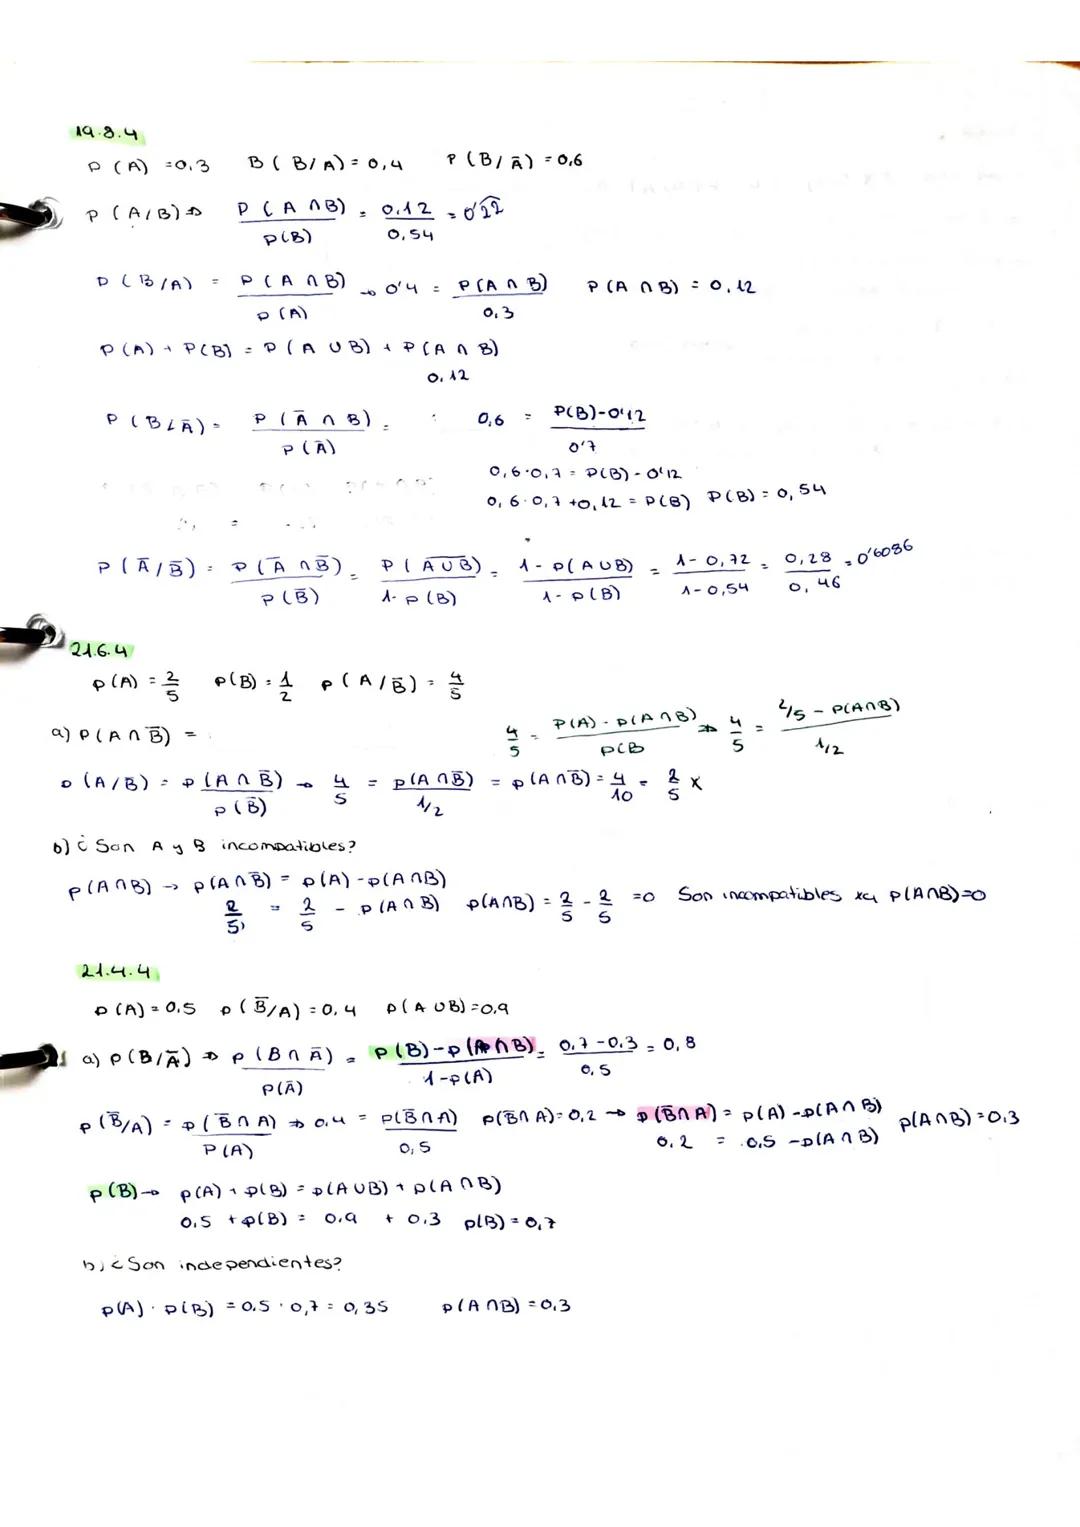 19.8.4
P(A) = 0.3 B(B/A) = 0,4 P(B/Ā) = 0,6
P(A/B) ⇒ P(A∩B)/P(B) = 0.12/0,54 = 0'2͡2
P(B/A) = P(A∩B)/P(A) → 0'4 = P(A∩B)/0.3 P(A∩B) = 0.12
P(A) + P(B) = P(A∪B) + P(A∩B)
0.12
P(B/Ā) = P(Ā∩B)/P(Ā) = 0,6 = P(B)-0'12/0'7
0,6·0,7 = P(B) - 0'12
0,6·0,7 + 0,12 = P(B) P(B) = 0,54
P(Ā/B̅) = P(Ā∩B̅)/P(B̅) = P(A̅∪̅B̅)/1-P(B) = 1-P(A∪B)/1-P(B) = 1-0,72/1-0,54 = 0,28/0,46 = 0'6086
21.6.4
P(A) = 2/5 P(B) = 1/2 P(A/B̅) = 4/5
a) P(A∩B̅) =
4/5 = P(A)-P(A∩B)/P(B ⇒ 4/5 = 2/5 - P(A∩B)/1/2
P(A/B) = P(A∩B̅)/P(B̅) → 4/5 = P(A∩B̅)/1/2 = P(A∩B̅) = 4/10 = 2/5 x
b) ¿Son A y B incompatibles?
P(A∩B) → P(A∩B̅) = P(A) - P(A∩B)
2/5 = 2/5 - P(A∩B) P(A∩B) = 2/5 - 2/5 = 0 Son incompatibles xq P(A∩B)=0
21.4.4
P(A) = 0.5 P(B̅/A) = 0,4 P(A∪B) = 0.9
a) P(B/Ā) ⇒ P(B∩Ā)/P(Ā) = P(B)-P(A∩B)/1-P(A) = 0.7-0.3/0,5 = 0,8
P(B̅/A) = P(B̅∩A)/P(A) ⇒ 0.4 = P(B̅∩A)/0,5 P(B̅∩A) = 0,2 → P(B̅∩A) = P(A) - P(A∩B) P(A∩B) = 0.3
0.2 = 0.5 - P(A∩B)
P(B) → P(A) + P(B) = P(A∪B) + P(A∩B)
0.5 + P(B) = 0.9 + 0.3 P(B) = 0,7
b) ¿Son independientes?
P(A) · P(B) = 0.5 · 0,7 = 0,35 P(A∩B) = 0.3